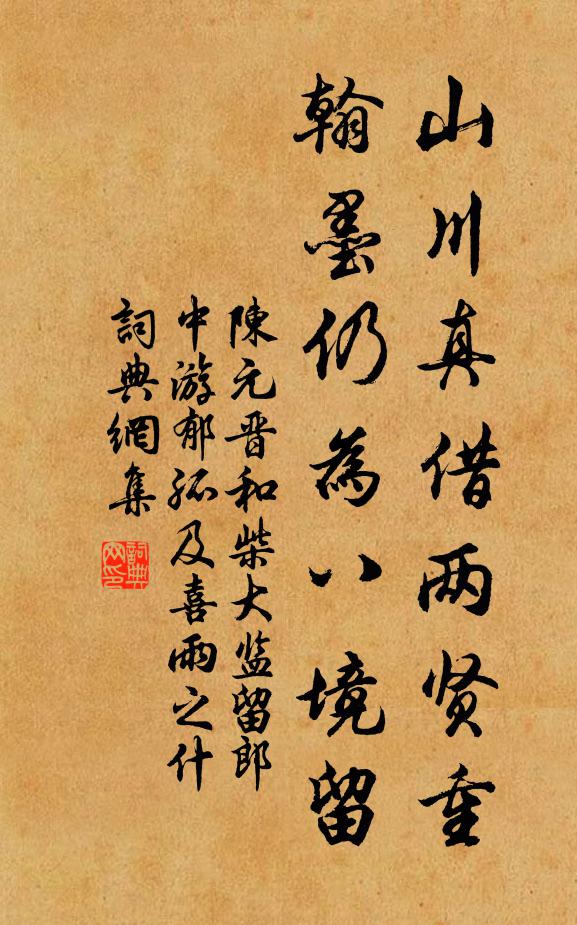 山川真借两贤重
翰墨仍為八境留
陳元晋和柴大监留郎
中游郁孤及喜雨之什
詞典網集
詞典网印